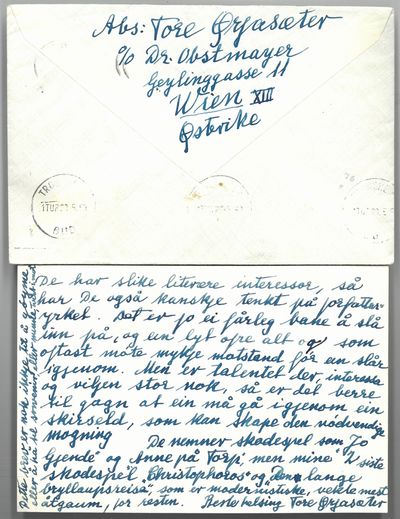 Abs: Tore Ørjasæter
c/o Dr. Obstmayer
Geylinggasse 11
Wien XIII
Østrike
De har slike literære interessor, så
har De også kanskje tenkt på forfattar-
yrket. Det er jo ei fårleg bane å slå
inn på, og ein lyt ofre alt og som
oftast møta mykje motstand før en slår
igjenom. Men er talentet der, interessa
og viljen stor nok, så er dål berre
til gagn at ein må gå igjenom ein
skirseld, som kan skape den nødvendige
mogning De nemner skodespel som "Jo
Gjende" og "Anne på Torp", men mine 2 siste
skodespel, "Christophoros" og "Den lange
bryllaupsreisa", som er modernistiske, vekte mest
åtgaum, for resten. Hertelkelsing Tore Ørjasæter
Dette brev er nok ikkje til å gøyme